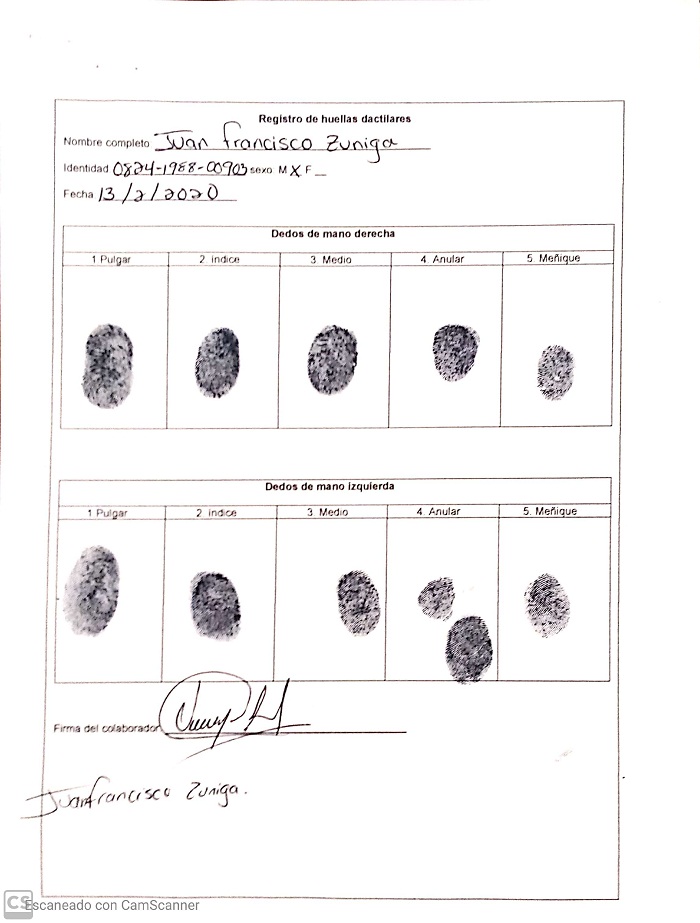 Registro de huellas dactilares
Nombre completo Juan francisco Zuniga
Identidad 0824-1988-00903 sexo M X F _
Fecha 13/2/2020
Dedos de mano derecha
1 Pulgar 2. indice 3. Medio 4. Anular 5. Meñique
Dedos de mano izquierda
1 Pulgar 2. indice 3. Medio 4. Anular 5. Meñique
Firma del colaborador
Juan francisco Zuniga.
CS Escaneado con CamScanner